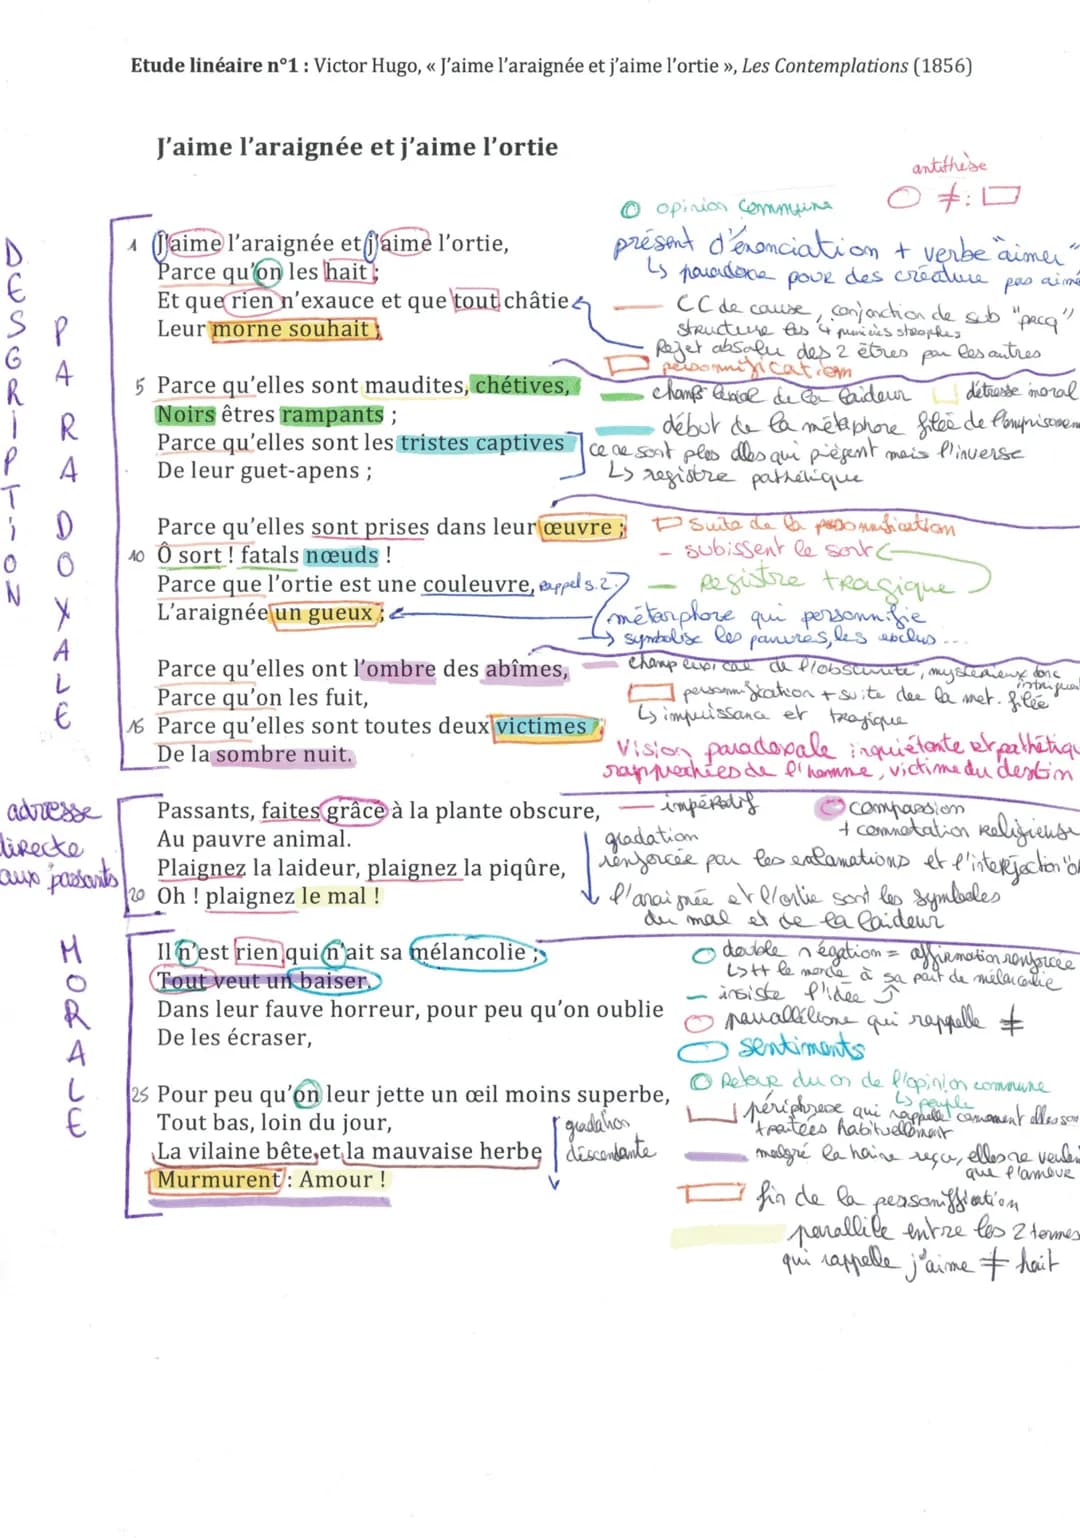 Etude linéaire n°1 : Victor Hugo, « J'aime l'araignée et j'aime l'ortie », Les Contemplations (1856)
J'aime l'araignée et j'aime l'ortie
antithèse
≠ :
opinion commune
DESCRIPTION
PARADOXALE
1 J'aime l'araignée et j'aime l'ortie,
Parce qu'on les hait ;
Et que rien n'exauce et que tout châtie
Leur morne souhait ;
présent d'énonciation + verbe "aimer"
↳ paradoxe pour des créature pas aimé
CC de cause, conjonction de sub "parcq"
structure les 4 premières strophes
Rejet absolu des 2 êtres par les autres
personnification
5 Parce qu'elles sont maudites, chétives,
Noirs êtres rampants ;
Parce qu'elles sont les tristes captives
De leur guet-apens ;
champ lexical de la laideur
détresse moral
début de la métaphore filée de l'emprisonnem
ce ne sont plus elles qui piègent mais l'inverse
↳ registre pathétique
Parce qu'elles sont prises dans leur œuvre ;
10 Ô sort ! fatals nœuds !
Parce que l'ortie est une couleuvre, rappel s.2.
L'araignée un gueux ;
suite de la personnification
- subissent le sort
Registre tragique
métaphore qui personnifie
↳ symbolise les pauvres, les exclus ...
Parce qu'elles ont l'ombre des abîmes,
Parce qu'on les fuit,
15 Parce qu'elles sont toutes deux victimes
De la sombre nuit.
champ lexical de l'obscurité, mystérieux donc
intrigant
personnification + suite de la met. filée
↳ impuissance et tragique
Vision paradoxale inquiétante et pathétiqu
rapprochées de l'homme, victime du destin
adresse
directe
aux passants
Passants, faites grâce à la plante obscure,
Au pauvre animal.
Plaignez la laideur, plaignez la piqûre,
20 Oh ! plaignez le mal !
impératif
compassion
+ connotation Religieuse
gradation
renforcée par les exclamations et l'interjection "oh
l'araignée et l'ortie sont les symboles
du mal et de la laideur
MORALE
Il n'est rien qui n'ait sa mélancolie ;
Tout veut un baiser.
Dans leur fauve horreur, pour peu qu'on oublie
De les écraser,
double négation = affirmation renforcée
↳ tt le monde à sa part de mélancolie
- insiste l'idée
parallélisme qui rappelle ≠
sentiments
25 Pour peu qu'on leur jette un œil moins superbe,
Tout bas, loin du jour,
La vilaine bête et la mauvaise herbe
Murmurent : Amour !
gradation
descendante
Retour du on de l'opinion commune
↳ peuple
périphrase qui rappelle comment elles son
traitées habituellement
malgré la haine reçu, elles ne veulen
que l'amour
fin de la personnification
parallèle entre les 2 termes
qui rappelle j'aime ≠ hait